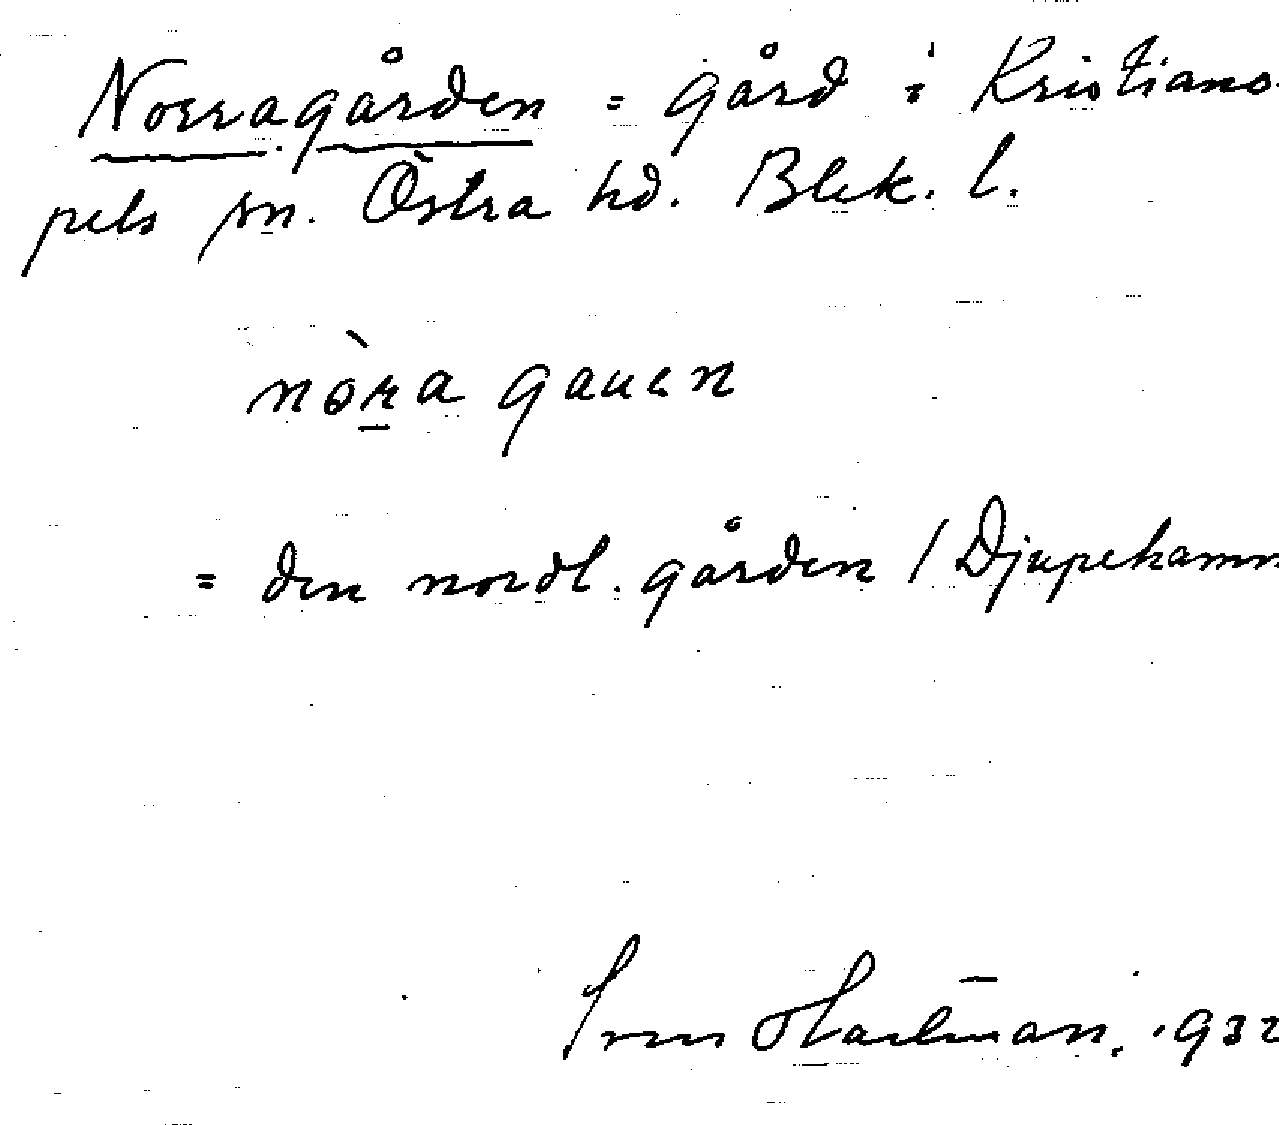 Norragården = gård i Kristiano-
pels sn. Östra hd. Blek. l.
nòra gauen
= den nordl. gården / Djupekamm
Sven Hartman. 1932